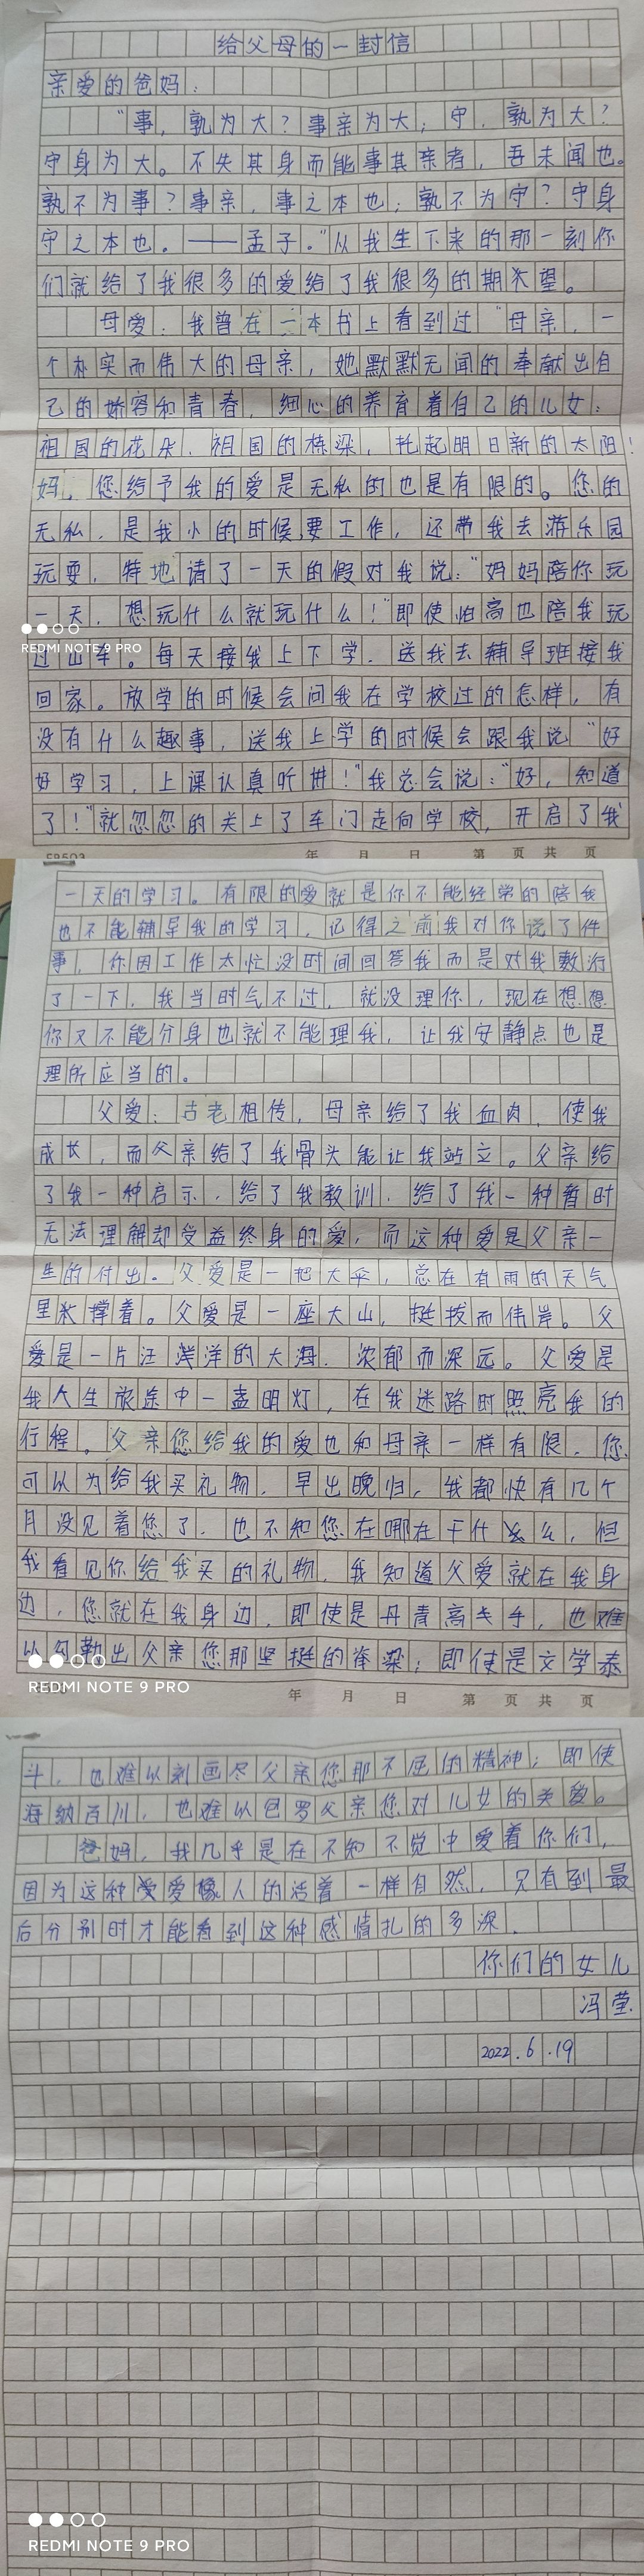 给父母的一封信
亲爱的爸妈：
“事，孰为大？事亲为大；守，孰为大？
守身为大。不失其身而能事其亲者，吾未闻也。
孰不为事？事亲，事之本也；孰不为守？守身
守之本也。——孟子。”从我生下来的那一刻你
们就给了我很多的爱给了我很多的期望。
母爱：我曾在一本书上看到过“母亲，一
个朴实而伟大的母亲，她默默无闻的奉献出自
己的娇容和青春，细心的养育着自己的儿女：
祖国的花朵、祖国的栋梁，托起明日新的太阳！
妈，您给予我的爱是无私的也是有限的。您的
无私，是我小的时候，要工作，还带我去游乐园
玩耍，特地请了一天的假对我说：“妈妈陪你玩
一天，想玩什么就玩什么！”即使怕高也陪我玩
过山车。每天接我上下学，送我去辅导班接我
回家。放学的时候会问我在学校过的怎样，有
没有什么趣事，送我上学的时候会跟我说“好
好学习，上课认真听讲！”我总会说：“好，知道
了！”就忽忽的关上了车门走向学校，开启了我
年 月 日 第 页 共 页
一天的学习。有限的爱就是你不能经常的陪我
也不能辅导我的学习，记得之前我对你说了件
事，你因工作太忙没时间回答我而是对我敷衍
了一下，我当时气不过，就没理你，现在想想
你又不能分身也就不能理我，让我安静点也是
理所应当的。
父爱：古老相传，母亲给了我血肉，使我
成长，而父亲给了我骨头能让我站立。父亲给
了我一种启示，给了我教训，给了我一种暂时
无法理解却受益终身的爱，而这种爱是父亲一
生的付出。父爱是一把大伞，总在有雨的天气
里撑着。父爱是一座大山，挺拔而伟岸。父
爱是一片汪洋的大海，浓郁而深远。父爱是
我人生旅途中一盏明灯，在我迷路时照亮我的
行程。父亲您给我的爱也和母亲一样有限，您
可以为给我买礼物，早出晚归，我都快有几个
月没见着您了，也不知您在哪在干什么，但
我看见你给我买的礼物，我知道父爱就在我身
边，您就在我身边，即使是丹青高手，也难
以勾勒出父亲您那坚挺的脊梁；即使是文学泰
年 月 日 第 页 共 页
斗，也难以刻画尽父亲您那不屈的精神；即使
海纳百川，也难以包罗父亲您对儿女的关爱。
爸妈，我几乎是在不知不觉中爱着你们，
因为这种爱像人的活着一样自然，只有到最
后分别时才能看到这种感情扎的多深。
你们的女儿
冯莹
2022.6.19
REDMI NOTE 9 PRO
REDMI NOTE 9 PRO
REDMI NOTE 9 PRO